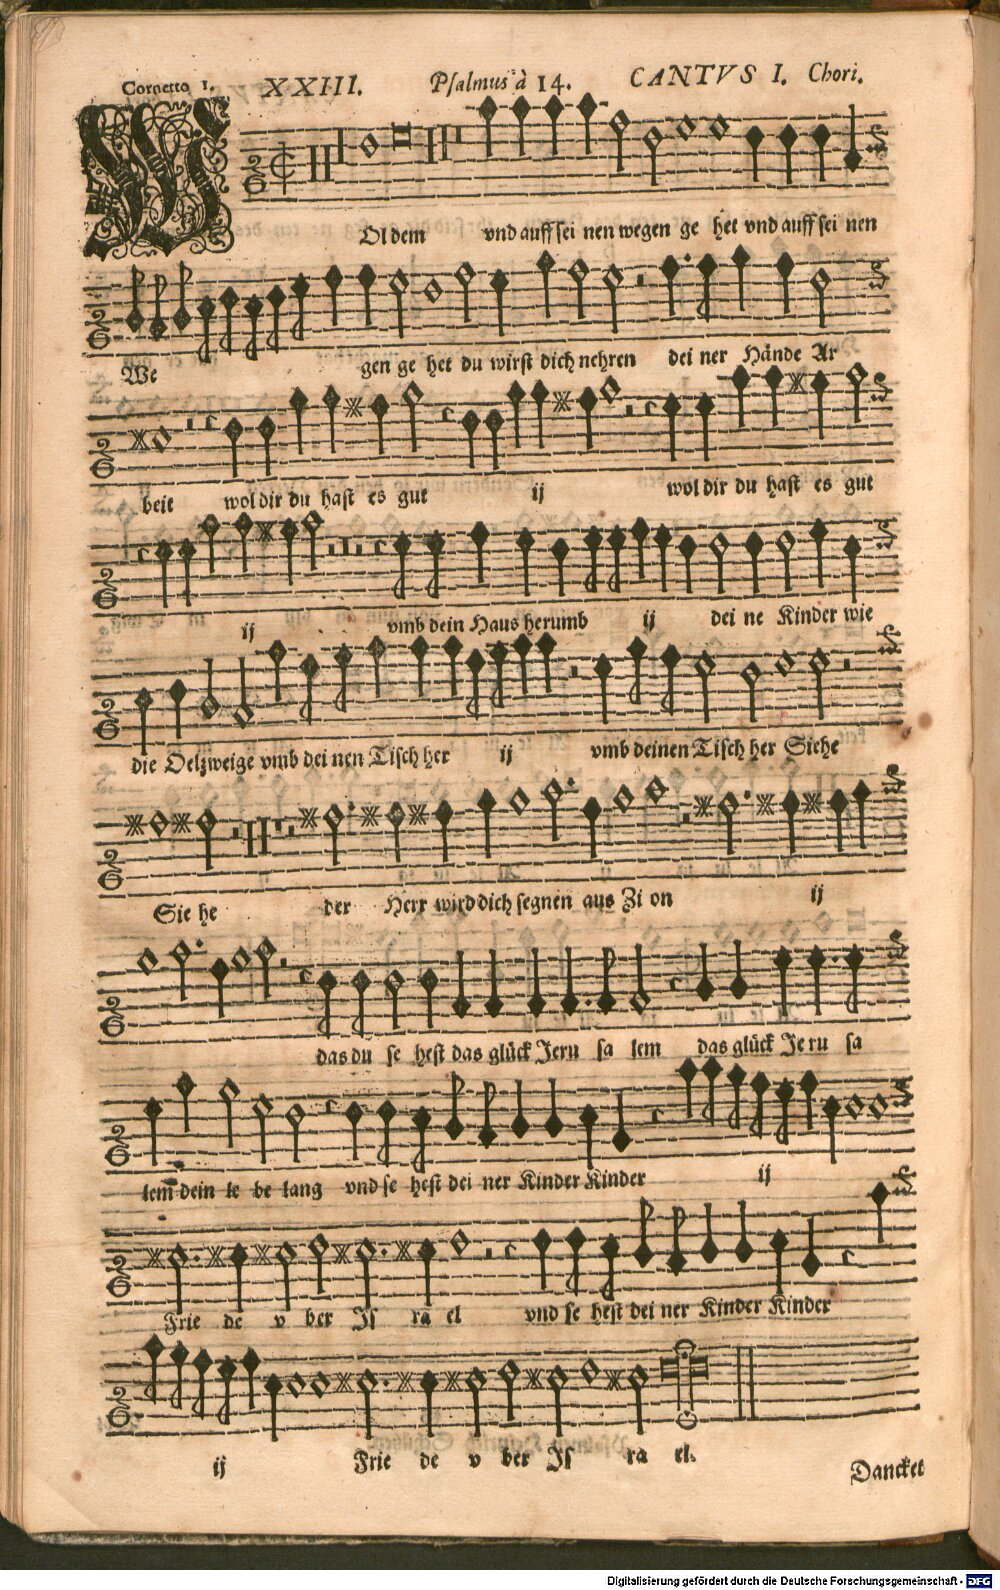 Cornetto 1. XXIII. Psalmus à 14. CANTVS I. Chori.
WOl dem vnd auff sei nen wegen ge het vnd auff sei nen
We gen ge het du wirst dich nehren dei ner Hände Ar
beit wol dir du hast es gut ij wol dir du hast es gut
ij vmb dein Haus herumb ij dei ne Kinder wie
die Oelzweige vmb dei nen Tisch her ij vmb deinen Tisch her Siehe
Sie he der Herr wird dich segnen aus Zi on ij
das du se hest das glück Jeru sa lem das glück Je ru sa
lem dein le be lang vnd se hest dei ner Kinder Kinder ij
Frie de v ber Js ra el vnd se hest dei ner Kinder Kinder
ij Frie de v ber Js ra el.
Dancket
Digitalisierung gefördert durch die Deutsche Forschungsgemeinschaft - DFG